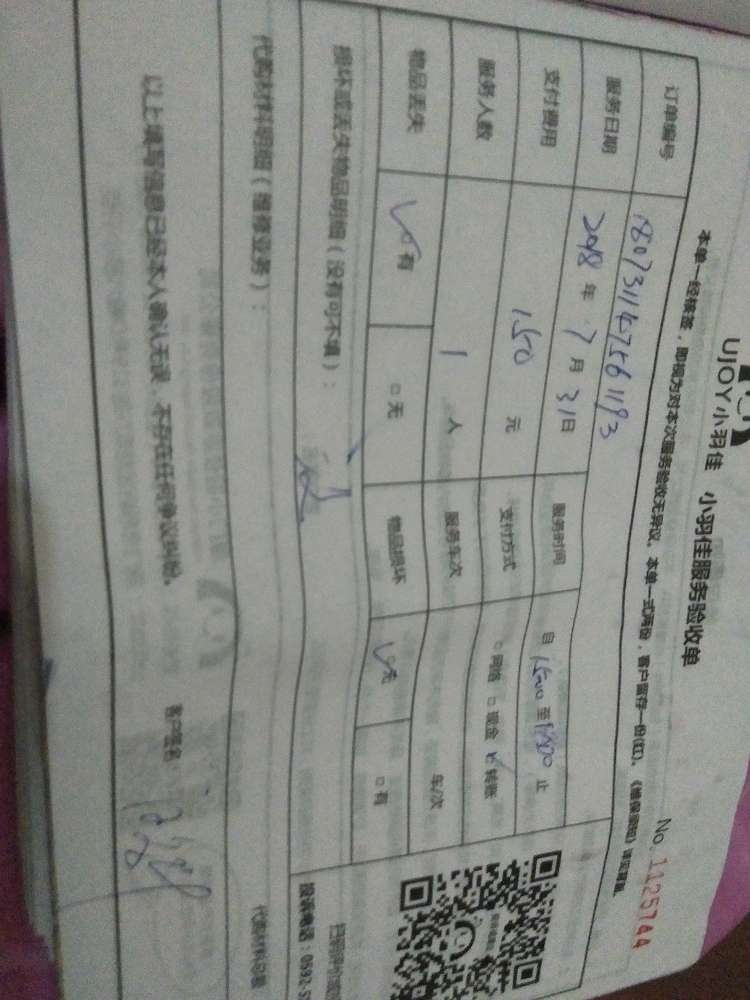 UJOY小羽佳 小羽佳服务验收单
本单一经接签，即视为对本次服务验收无异议。本单一式两份，客户留存一份(红)。《维保须知》详见背面。
No. 1125744
订单编号
服务日期 2018 年 7 月 31日 服务时间 自 至 止
支付费用 150 元 支付方式 □ 网络 □ 现金 转账
服务人数 1 人 服务车次 车/次
物品丢失 □ 有 □ 无 物品损坏 无 □ 有
损坏或丢失物品明细（没有可不填）：
代购材料明细（维修业务）： 代购材料总额
以上填写信息已经本人确认无误，不存在任何争议纠纷。 客户签名：